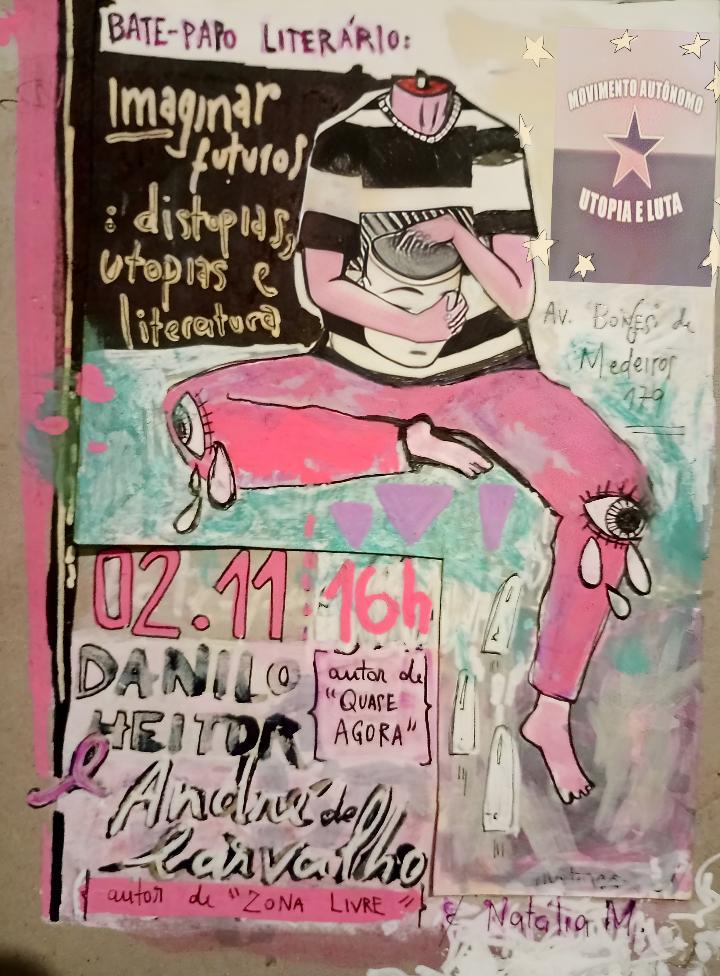 BATE-PAPO LITERÁRIO:
Imaginar
futuros
: distopias,
utopias e
literatura
MOVIMENTO AUTÔNOMO
UTOPIA E LUTA
Av. Borges de
Medeiros
179
02.11
16h
DANILO
HEITOR
autor de
"QUASE
AGORA"
e
André de
Carvalho
autor de "ZONA LIVRE"
& Natália M.